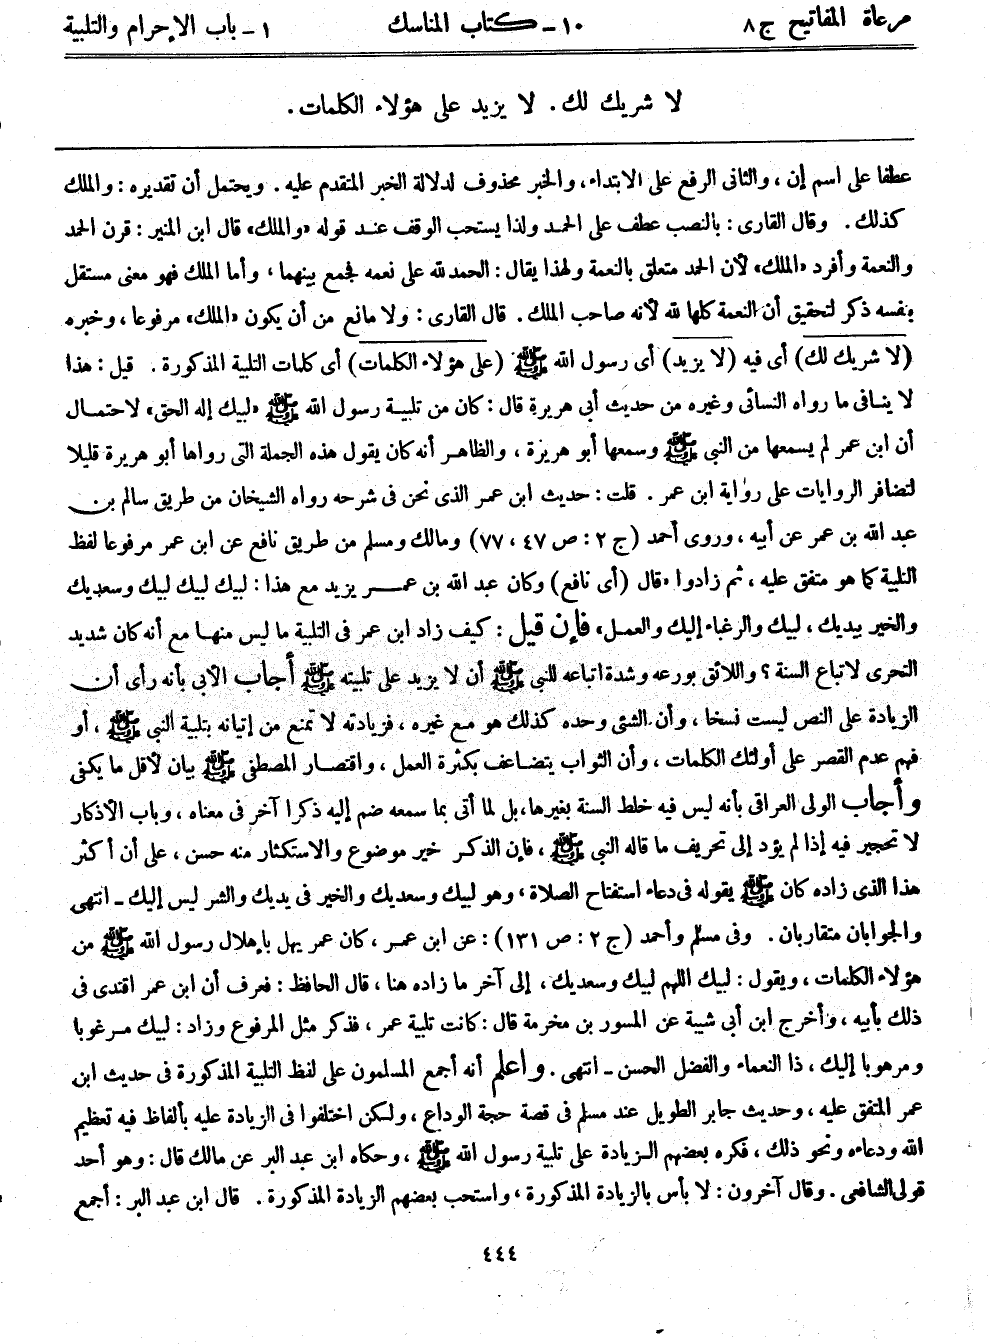 مرعاة المفاتيح ج ٨ ١٠ - كتاب المناسك ١ - باب الإحرام والتلبية
لا شريك لك. لا يزيد على هؤلاء الكلمات.
عطفا على اسم إن، والثانى الرفع على الابتداء، والخبر محذوف لدلالة الخبر المتقدم عليه. ويحتمل أن تقديره: والملك
كذلك. وقال القارى: بالنصب عطف على الحمد ولذا يستحب الوقف عند قوله «والملك» قال ابن المنير: قرن الحمد
والنعمة وأفرد «الملك» لأن الحمد متعلق بالنعمة ولهذا يقال: الحمد لله على نعمه فجمع بينهما، وأما الملك فهو معنى مستقل
بنفسه ذكر لتحقيق أن النعمة كلها لله لأنه صاحب الملك. قال القارى: ولا مانع من أن يكون «الملك» مرفوعا، وخبره
(لا شريك لك) أى فيه (لا يزيد) أى رسول الله ﷺ (على هؤلاء الكلمات) أى كلمات التلبية المذكورة. قيل: هذا
لا ينافى ما رواه النسائى وغيره من حديث أبى هريرة قال: كان من تلبية رسول الله ﷺ «لبيك إله الحق» لاحتمال
أن ابن عمر لم يسمعها من النبى ﷺ وسمعها أبو هريرة، والظاهر أنه كان يقول هذه الجملة التى رواها أبو هريرة قليلا
لتضافر الروايات على رواية ابن عمر. قلت: حديث ابن عمر الذى نحن فى شرحه رواه الشيخان من طريق سالم بن
عبد الله بن عمر عن أبيه، وروى أحمد (ج ٢: ص ٤٧، ٧٧) ومالك ومسلم من طريق نافع عن ابن عمر مرفوعا لفظ
التلبية كما هو متفق عليه، ثم زادوا «قال (أى نافع) وكان عبد الله بن عمر يزيد مع هذا: لبيك لبيك لبيك وسعديك
والخير بيديك، لبيك والرغباء إليك والعمل» فإن قيل: كيف زاد ابن عمر فى التلبية ما ليس منها مع أنه كان شديد
التحرى لاتباع السنة؟ واللائق بورعه وشدة اتباعه للنبى ﷺ أن لا يزيد على تلبيته ﷺ أجاب الأبى بأنه رأى أن
الزيادة على النص ليست نسخا، وأن الشئى وحده كذلك هو مع غيره، فزيادته لا تمنع من إتيانه بتلبية النبى ﷺ، أو
فهم عدم القصر على أولئك الكلمات، وأن الثواب يتضاعف بكثرة العمل، واقتصار المصطفى ﷺ بيان لأقل ما يكفى
وأجاب الولى العراقى بأنه ليس فيه خلط السنة بغيرها، بل لما أتى بما سمعه ضم إليه ذكرا آخر فى معناه، وباب الأذكار
لا تحجير فيه إذا لم يؤد إلى تحريف ما قاله النبى ﷺ، فإن الذكر خير موضوع والاستكثار منه حسن، على أن أكثر
هذا الذى زاده كان ﷺ يقوله فى دعاء استفتاح الصلاة، وهو لبيك وسعديك والخير فى يديك والشر ليس إليك - انتهى
والجوابان متقاربان. وفى مسلم وأحمد (ج ٢: ص ١٣١): عن ابن عمر، كان عمر يهل بإهلال رسول الله ﷺ من
هؤلاء الكلمات، ويقول: لبيك اللهم لبيك وسعديك، إلى آخر ما زاده هنا، قال الحافظ: فعرف أن ابن عمر اقتدى فى
ذلك بأبيه، وأخرج ابن أبى شيبة عن المسور بن مخرمة قال: كانت تلبية عمر، فذكر مثل المرفوع وزاد: لبيك مرغوبا
ومرهوبا إليك، ذا النعماء والفضل الحسن - انتهى. واعلم أنه أجمع المسلمون على لفظ التلبية المذكورة فى حديث ابن
عمر المتفق عليه، وحديث جابر الطويل عند مسلم فى قصة حجة الوداع، ولكن اختلفوا فى الزيادة عليه بألفاظ فيه تعظيم
الله ودعاءه ونحو ذلك، فكره بعضهم الزيادة على تلبية رسول الله ﷺ، وحكاه ابن عبد البر عن مالك قال: وهو أحد
قولى الشافعى. وقال آخرون: لا بأس بالزيادة المذكورة، واستحب بعضهم الزيادة المذكورة. قال ابن عبد البر: أجمع
٤٤٤